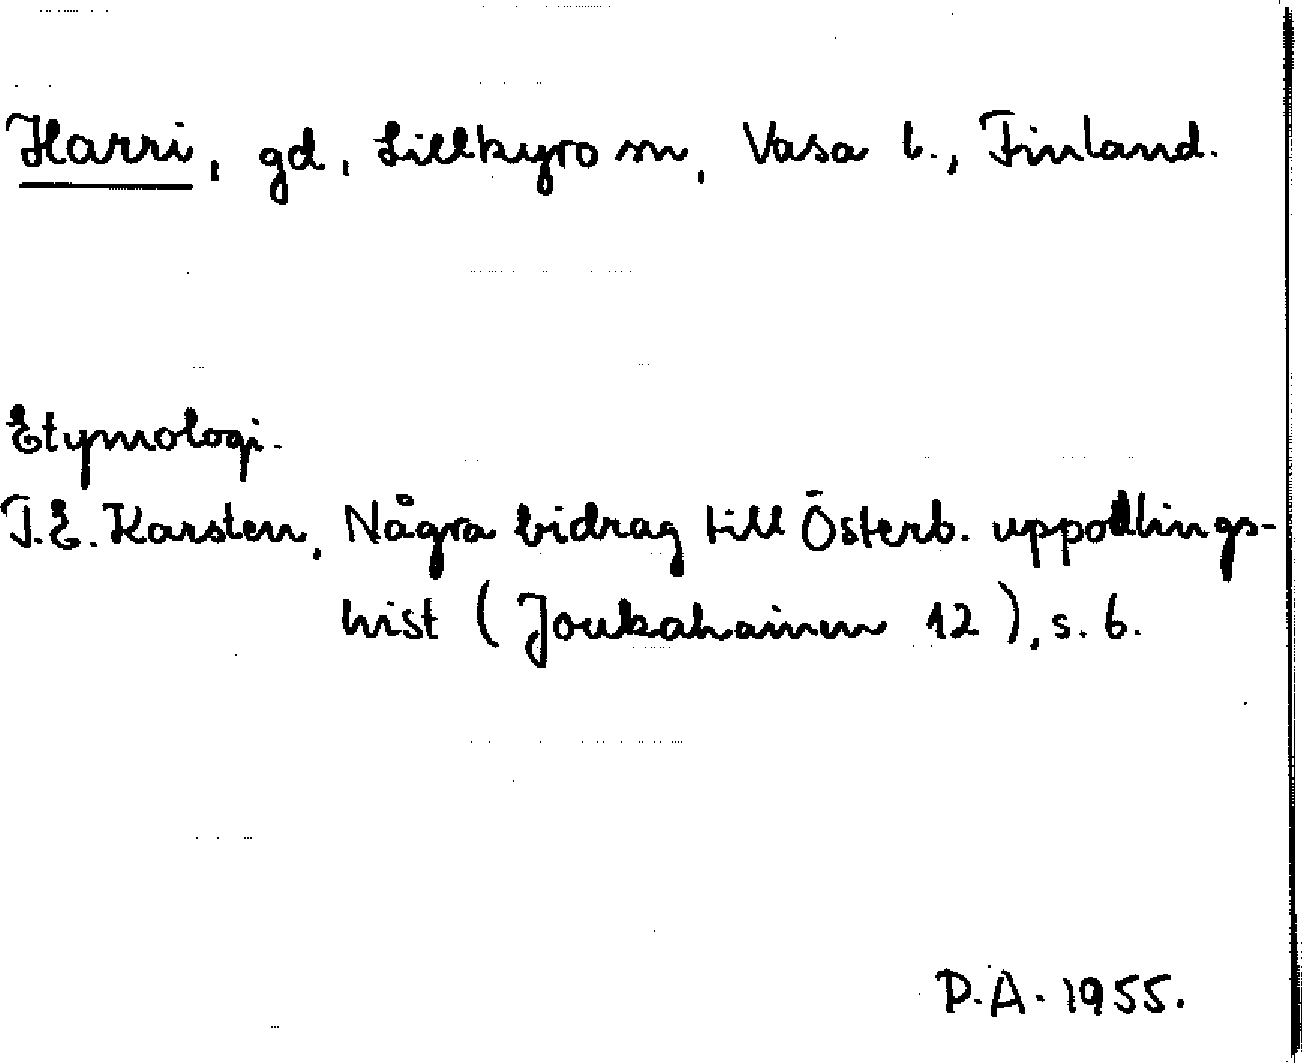 Harri, gd, Lillkyro sn, Vasa l., Finland.
Etymologi.
T.E. Karsten, Några bidrag till Österb. uppodlings-
hist (Joukahainen 12), s. 6.
P.A. 1955.